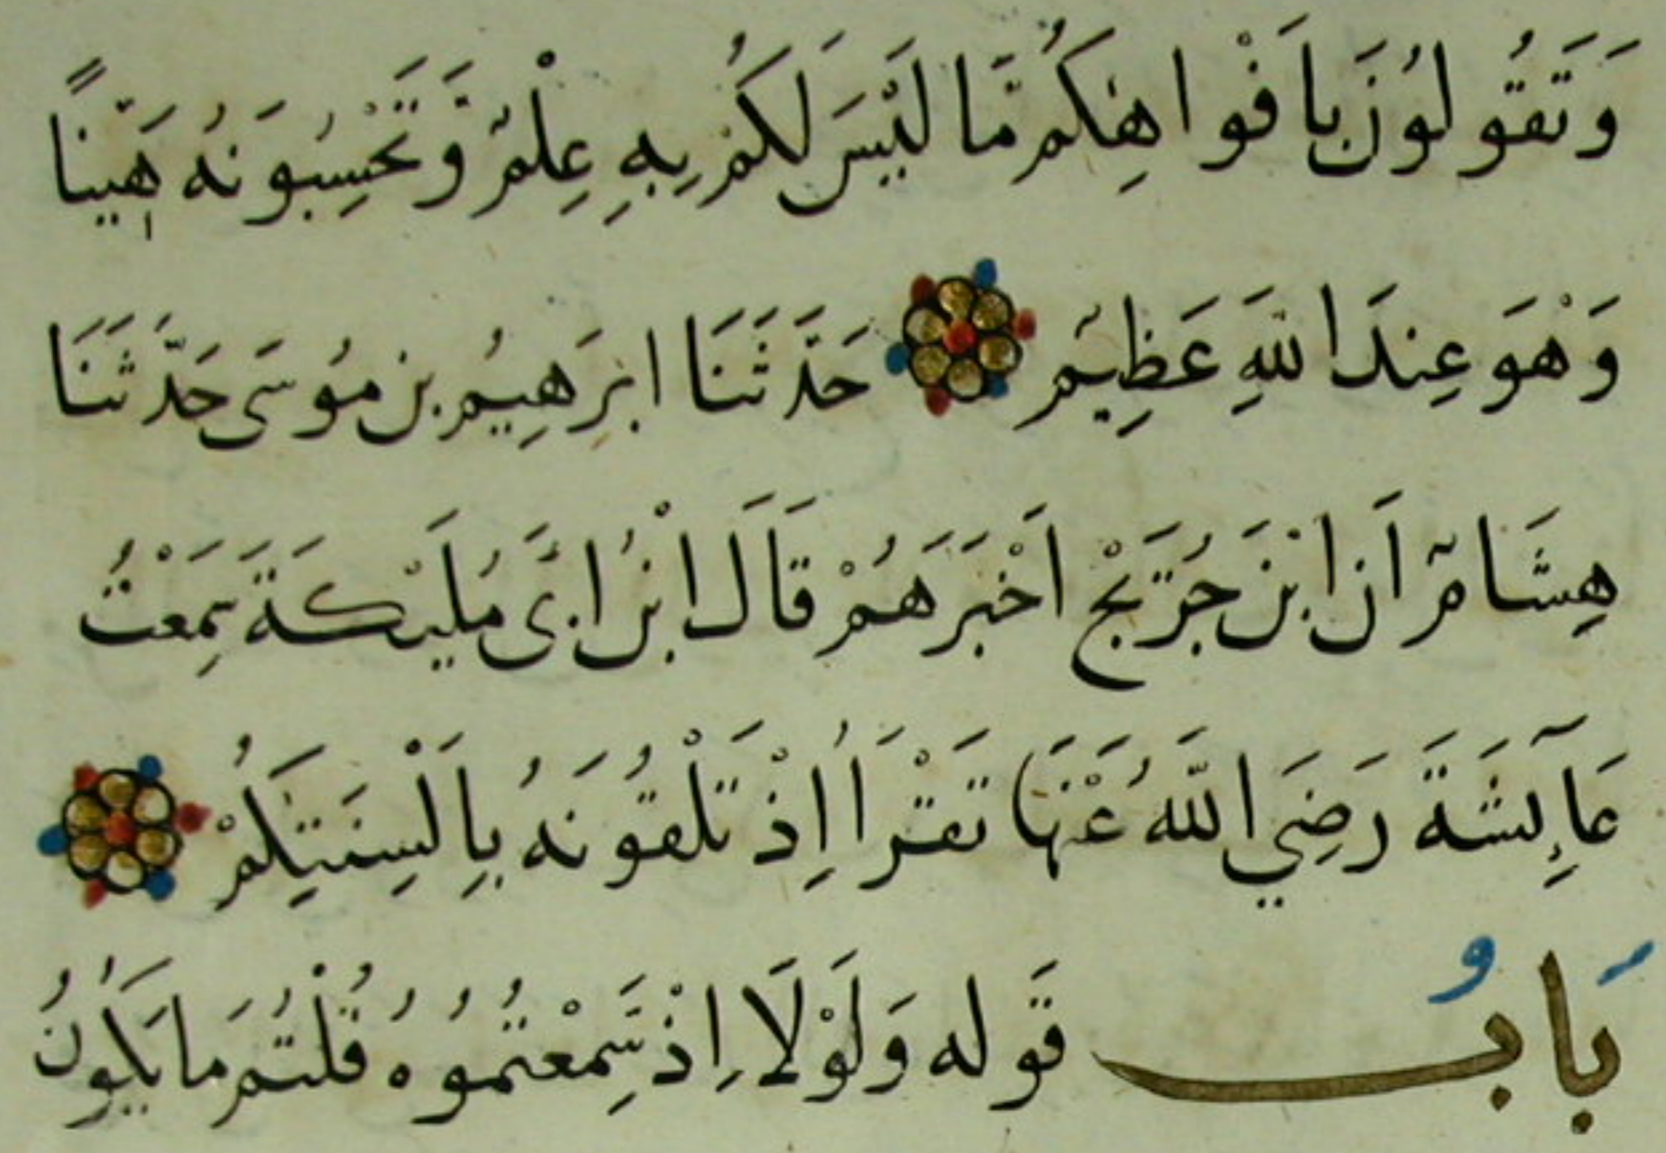 وَتَقُولُونَ بِأَفْوَاهِكُم مَّا لَيْسَ لَكُم بِهِ عِلْمٌ وَّتَحْسِبُونَهُ هَيِّنًا
وَهْوَ عِندَ اللهِ عَظِيْم حَدَّثَنَا ابْرَهِيمُ بن مُوسَى حَدَّثَنَا
هِشَامٌ أَن ابْنَ جُرَيْجٍ أَخْبَرَهُمْ قَالَ ابْنُ أَبِي مُلَيْكَةَ سَمِعْتُ
عَآئِشَةَ رَضِيَ اللَّهُ عَنْهَا تَقْرَأُ إِذْ تَلْقُونَهُ بِأَلْسِنَتِكُمْ
بَابُ قَوله وَلَوْلَا إِذْ سَّمِعْتُمُوهُ قُلْتُم مَا يَكُونُ